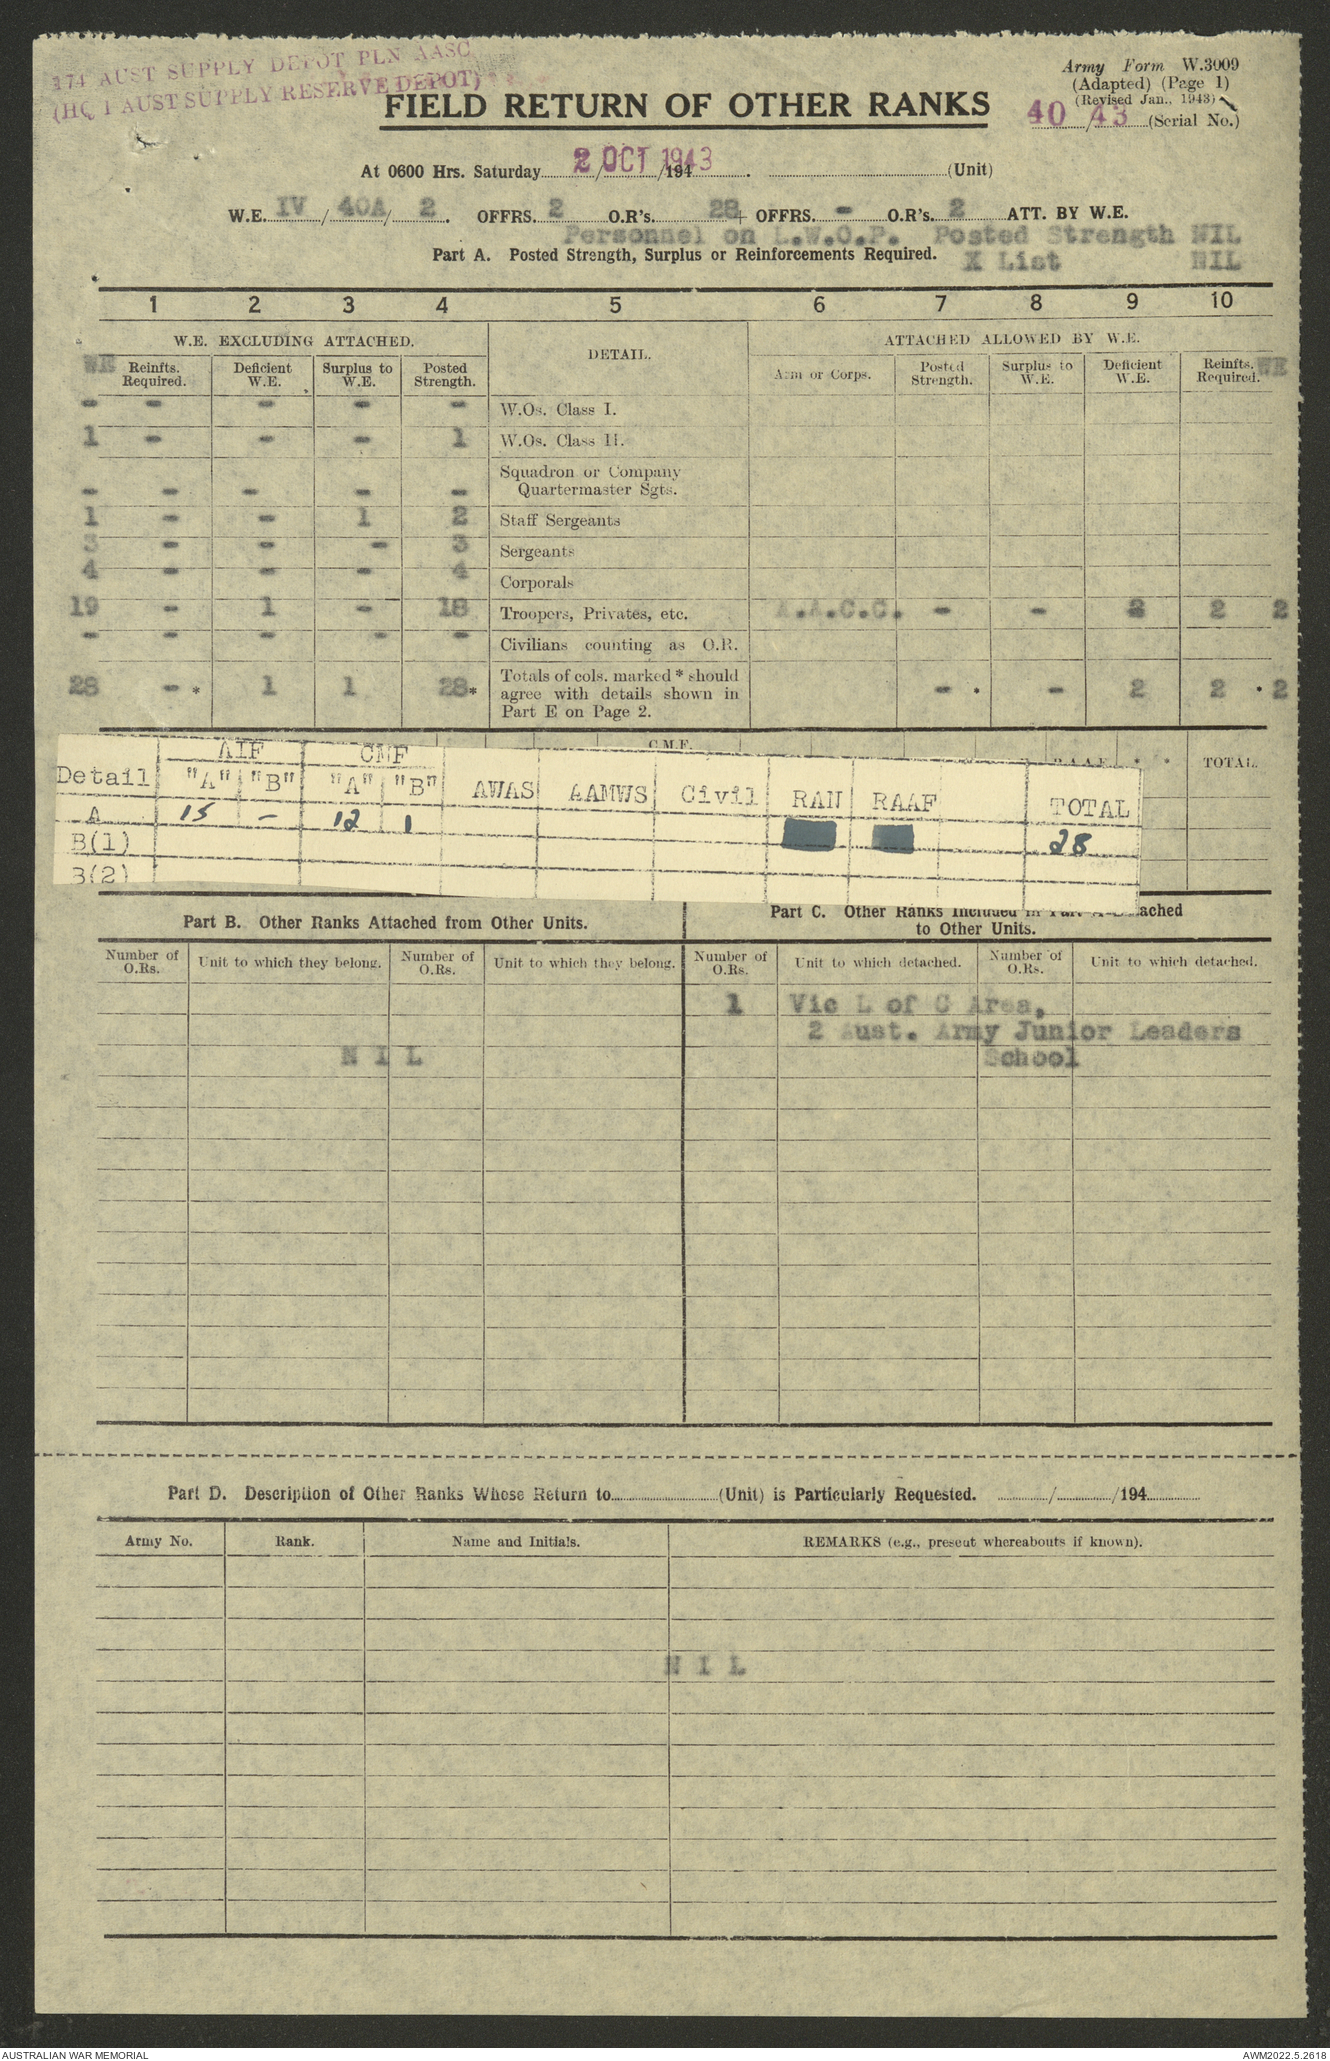 174 AUST SUPPLY DEPOT PLN AASC
(HQ 1 AUST SUPPLY RESERVE DEPOT)
Army Form W.3009
(Adapted) (Page 1)
(Revised Jan., 1943)
40/43 (Serial No.)
FIELD RETURN OF OTHER RANKS
At 0600 Hrs. Saturday 2 OCT 1943 /194 . (Unit)
W.E. IV / 40A / 2 . OFFRS. 2 O.R's. 28 + OFFRS. - O.R's. 2 ATT. BY W.E.
Personnel on L.W.O.P. Posted Strength NIL
Part A. Posted Strength, Surplus or Reinforcements Required. X List NIL
1 2 3 4 5 6 7 8 9 10
W.E. EXCLUDING ATTACHED. DETAIL. ATTACHED ALLOWED BY W.E.
WE Reinfts. Required. Deficient W.E. Surplus to W.E. Posted Strength. Arm or Corps. Posted Strength. Surplus to W.E. Deficient W.E. Reinfts. Required. WE
- - - - - W.Os. Class I.
1 - - - 1 W.Os. Class II.
Squadron or Company
- - - - - Quartermaster Sgts.
1 - - 1 2 Staff Sergeants
3 - - - 3 Sergeants
4 - - - 4 Corporals
19 - 1 - 18 Troopers, Privates, etc. A.A.C.C. - - 2 2 2
- - - - - Civilians counting as O.R.
28 - * 1 1 28* Totals of cols. marked * should agree with details shown in Part E on Page 2. - * - 2 2 * 2
C.M.F.
R.A.A.F. * * TOTAL.
AIF CMF
Detail "A" "B" "A" "B" AWAS AAMWS Civil RAN RAAF TOTAL
A 15 - 12 1 28
B(1)
B(2)
Part B. Other Ranks Attached from Other Units. Part C. Other Ranks Included in Part A-Detached
to Other Units.
Number of O.Rs. Unit to which they belong. Number of O.Rs. Unit to which they belong. Number of O.Rs. Unit to which detached. Number of O.Rs. Unit to which detached.
1 Vic L of C Area,
2 Aust. Army Junior Leaders
N I L School
Part D. Description of Other Ranks Whose Return to (Unit) is Particularly Requested. / /194
Army No. Rank. Name and Initials. REMARKS (e.g., present whereabouts if known).
N I L
AUSTRALIAN WAR MEMORIAL AWM2022.5.2618